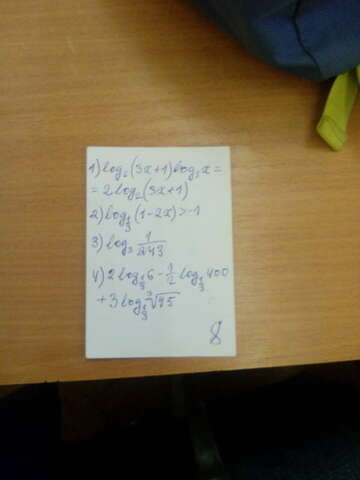 1) log₂(3x+1)log₃x=
=2log₂(3x+1)
2) log_{1/3}(1-2x)>-1
3) log₃ 1/243
4) 2log_{1/3}6 - 1/2 log_{1/3}400
+3log_{1/3}∛45
8